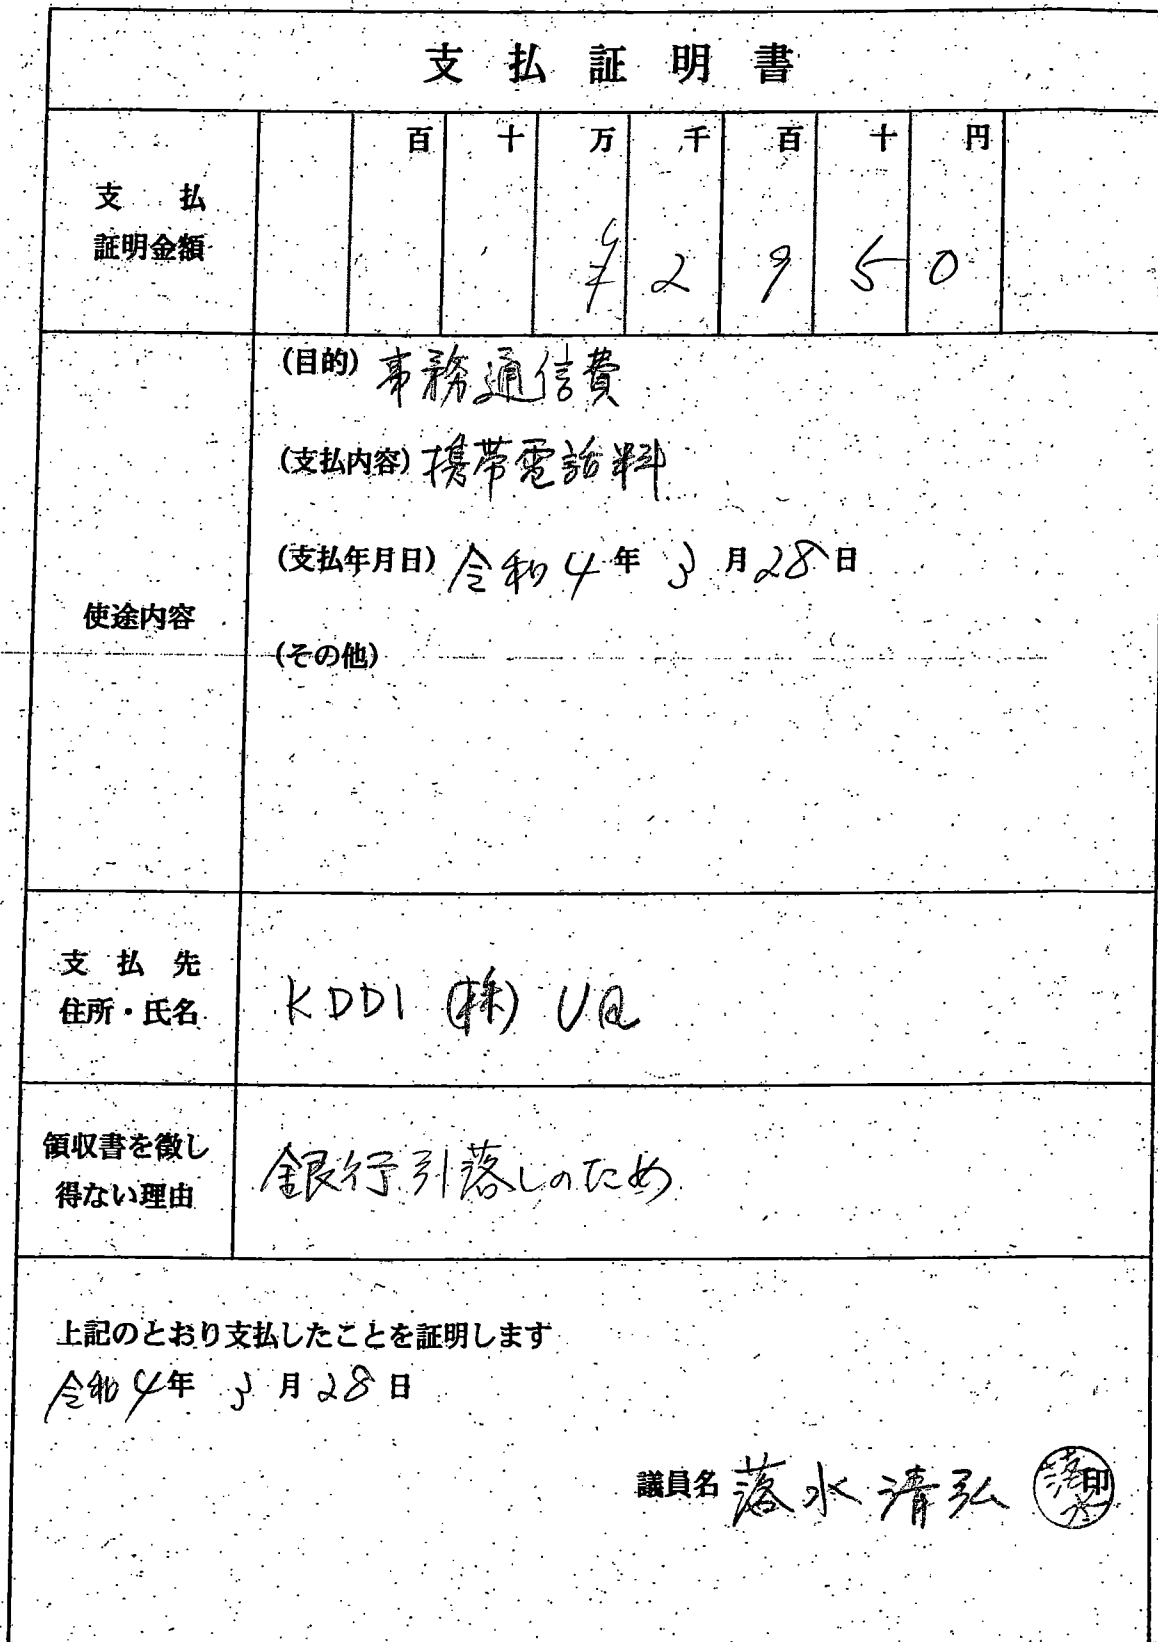 支払証明書
百 十 万 千 百 十 円
支払
証明金額
¥ 2 9 5 0
(目的) 事務通信費
(支払内容) 携帯電話料
(支払年月日) 令和4年 3月28日
使途内容
(その他)
支払先
住所・氏名
KDDI (株) UQ
領収書を徴し
得ない理由
銀行引落しのため
上記のとおり支払したことを証明します
令和4年 3月28日
議員名 落水清弘 印
落水